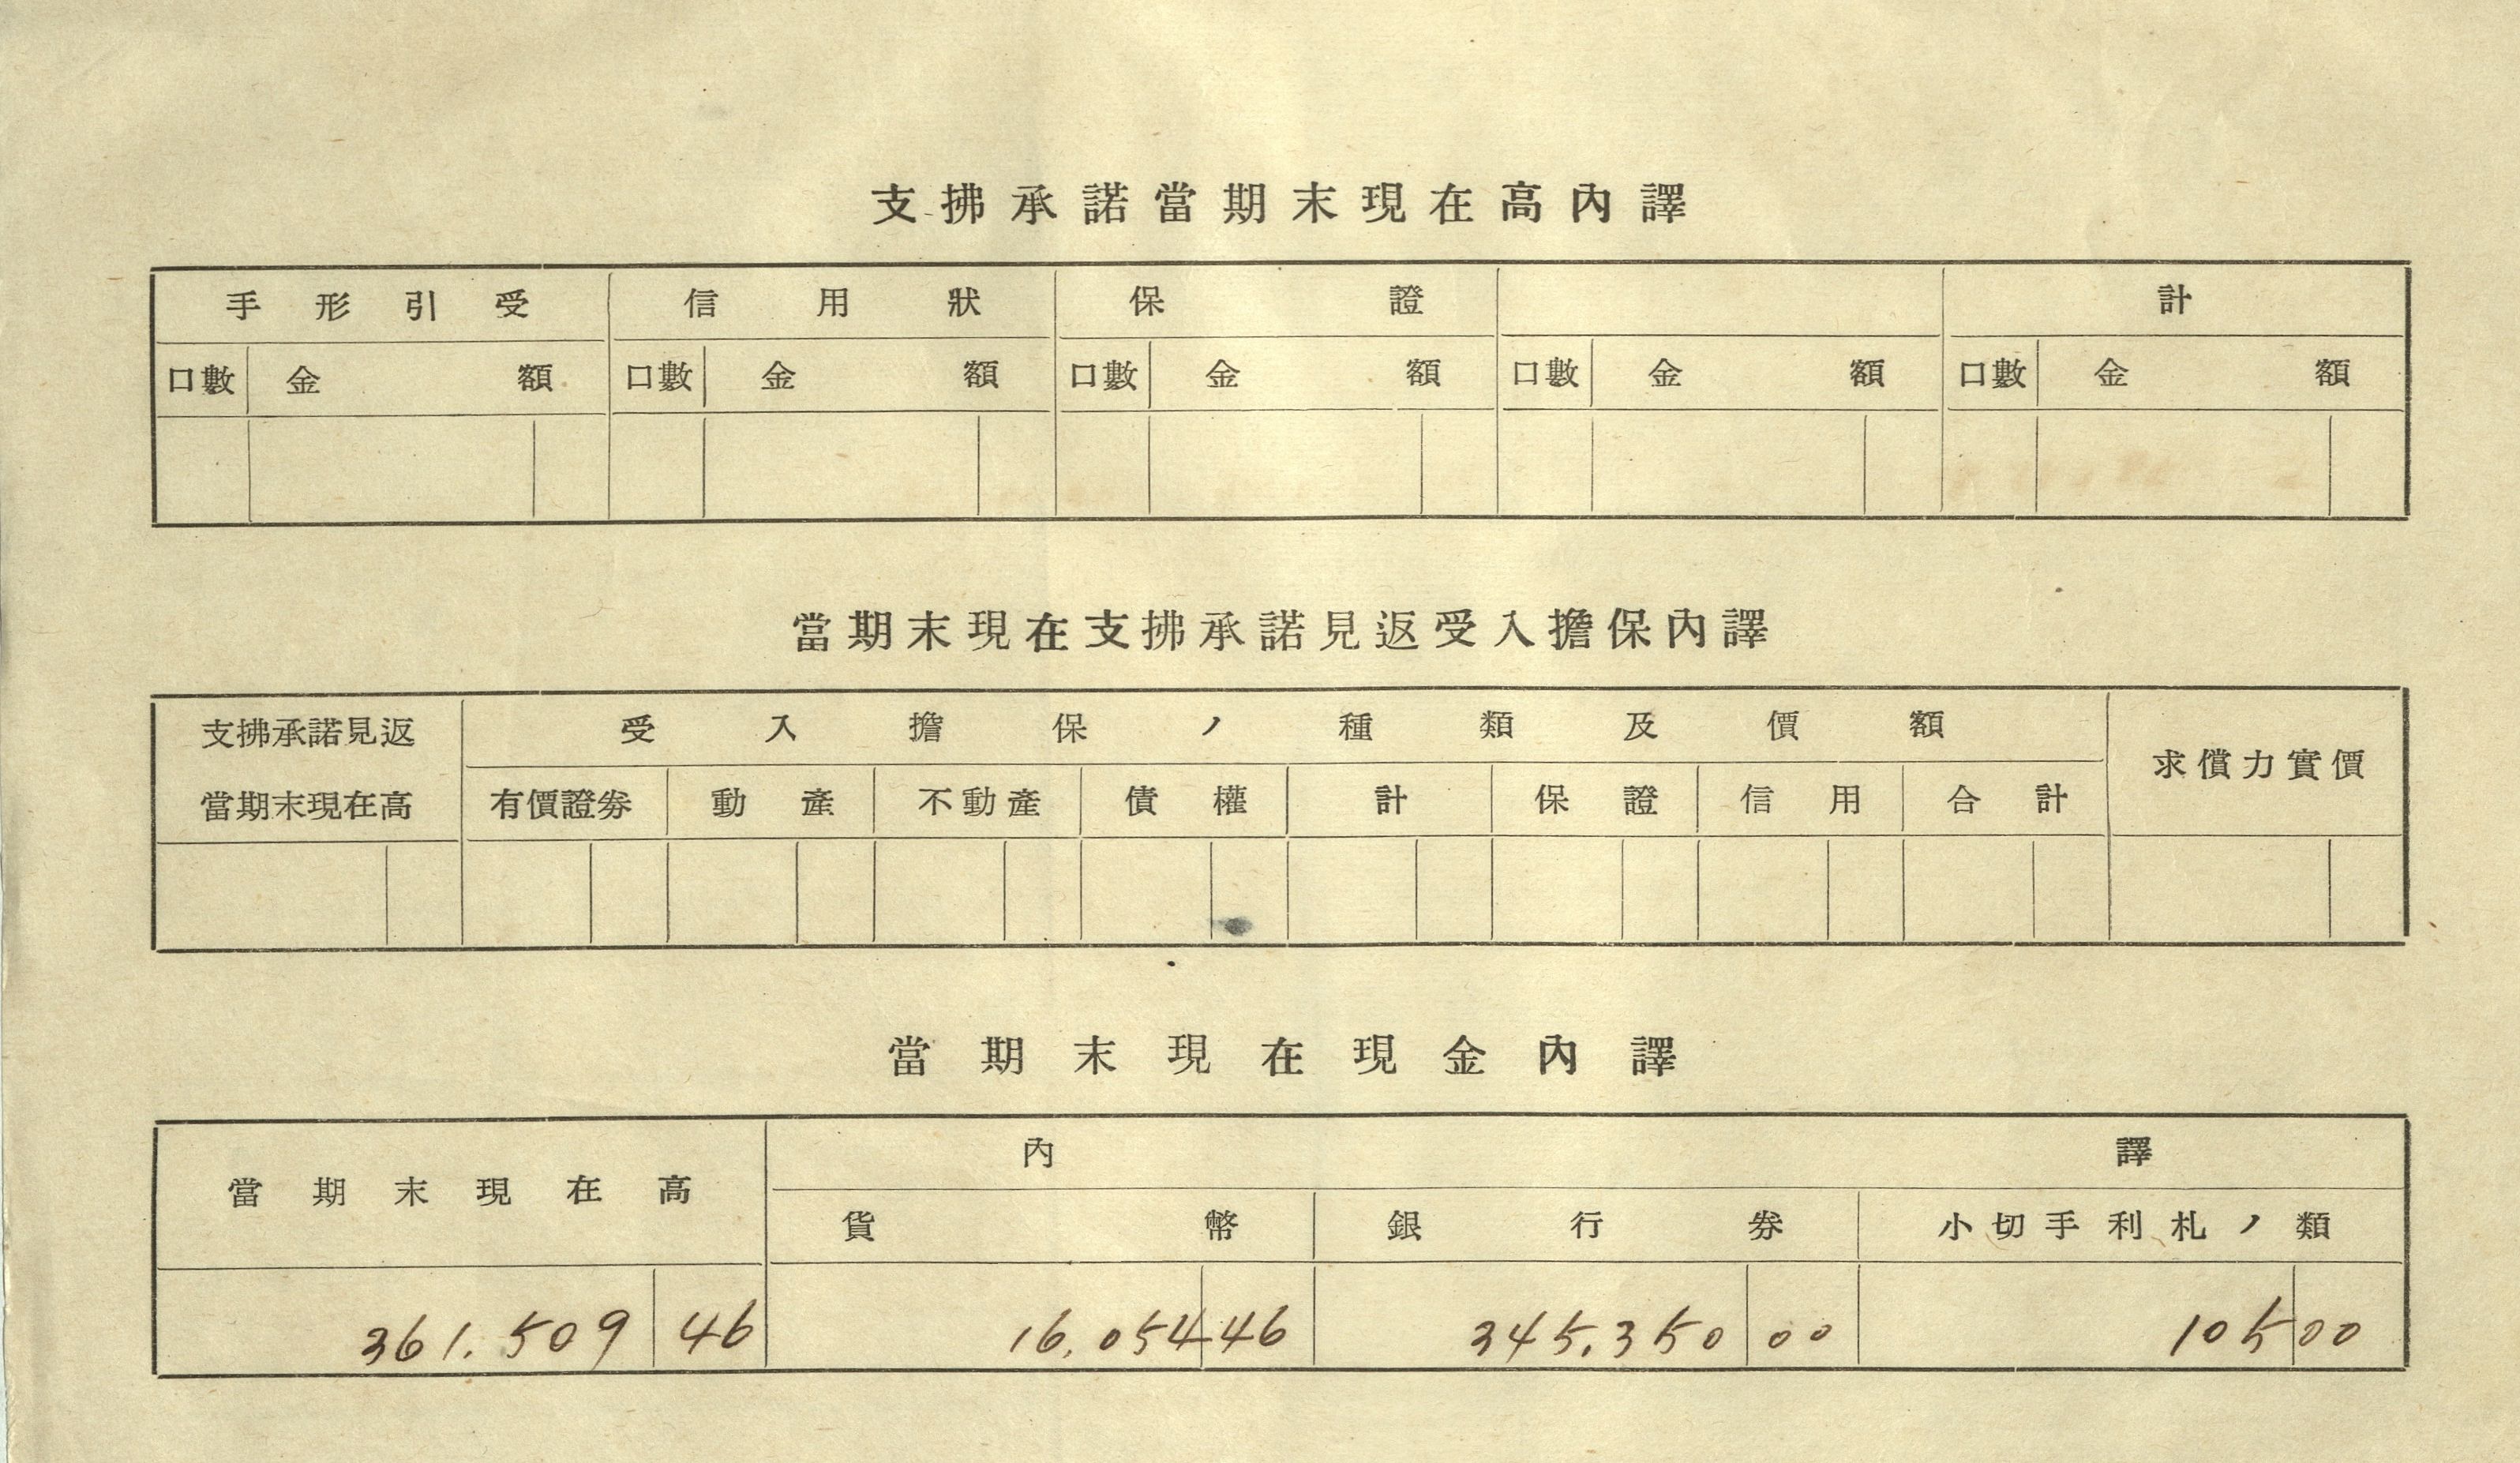 支拂承諾當期末現在高內譯
手形引受 信用狀 保證 計
口數 金額 口數 金額 口數 金額 口數 金額 口數 金額
當期末現在支拂承諾見返受入擔保內譯
支拂承諾見返當期末現在高 受入擔保ノ種類及價額 求償力實價
有價證券 動產 不動產 債權 計 保證 信用 合計
當期末現在現金內譯
當期末現在高 內譯
貨幣 銀行券 小切手利札ノ類
361.509 46 16,054 46 345.350 00 105 00